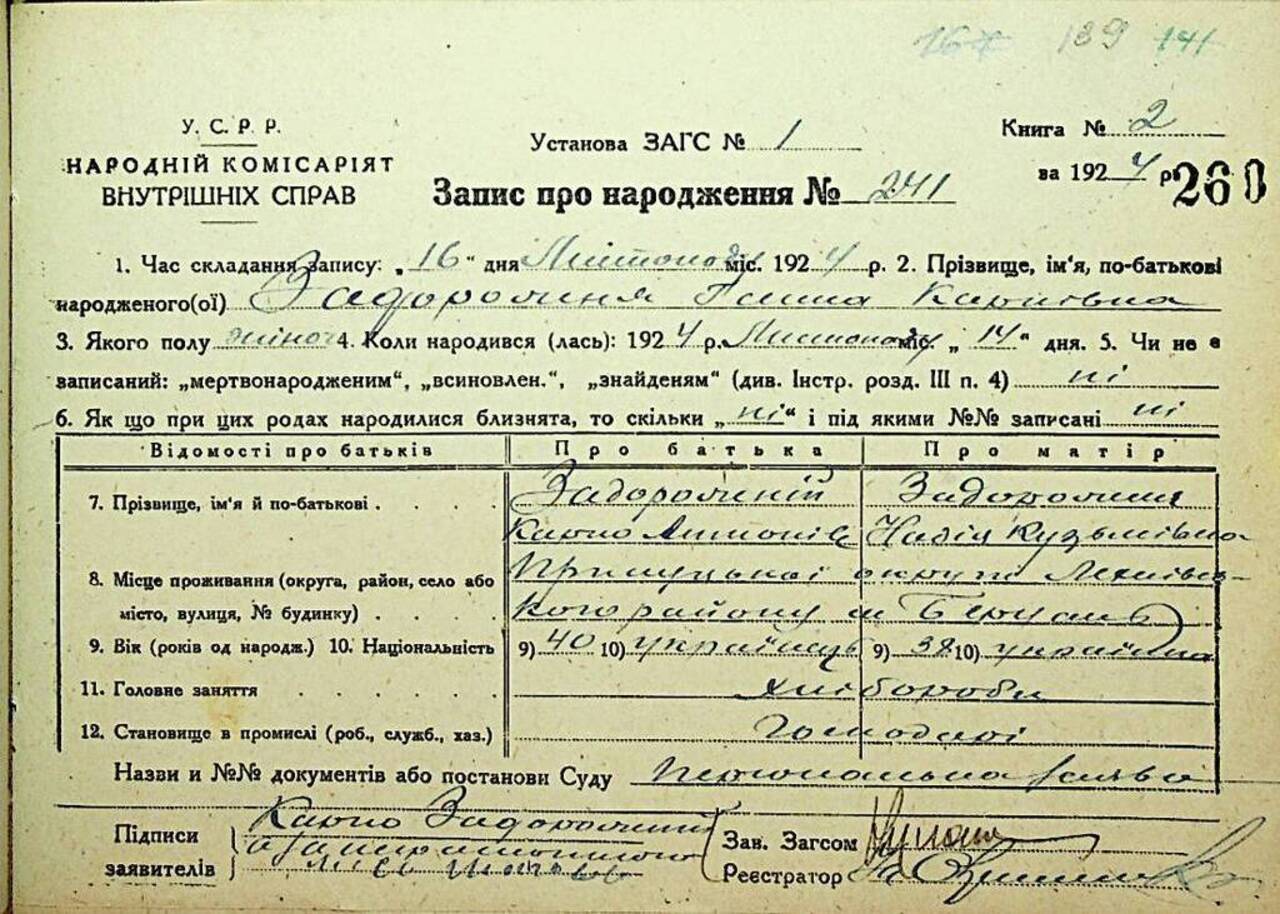 139 141
У. С. Р. Р.
НАРОДНІЙ КОМІСАРІЯТ
ВНУТРІШНІХ СПРАВ
Установа ЗАГС № 1
Запис про народження № 241
Книга № 2
за 1924 р.
260
1. Час складання запису: „16" дня Листопаду міс. 1924 р. 2. Прізвище, ім'я, по-батькові
народженого(ої) Задорожня Ганна Карпівна
3. Якого полу жіноч 4. Коли народився (лась): 1924 р. Листопаду міс. „14" дня. 5. Чи не є
записаний: „мертвонародженим", „всиновлен.", „знайденям" (див. Інстр. розд. III п. 4) ні
6. Як що при цих родах народилися близнята, то скільки „ні" і під якими №№ записані ні
Відомості про батьків Про батька Про матір
7. Прізвище, ім'я й по-батькові . . . . Задорожній Задорожня
Карпо Антонів Надія Кузьмівна
8. Місце проживання (округа, район, село або Прилуцької округи
місто, вулиця, № будинку) . . . . кого району
9. Вік (років од народж.) 10. Національність 9) 40 10) українець 9) 38 10) українка
11. Головне заняття . . . . . . хлібороби
12. Становище в промислі (роб., служб., хаз.) Господарі
Назви и №№ документів або постанови Суду персональна заява
Підписи
заявителів
Карпо Задорожний
Зав. Загсом
Реєстратор